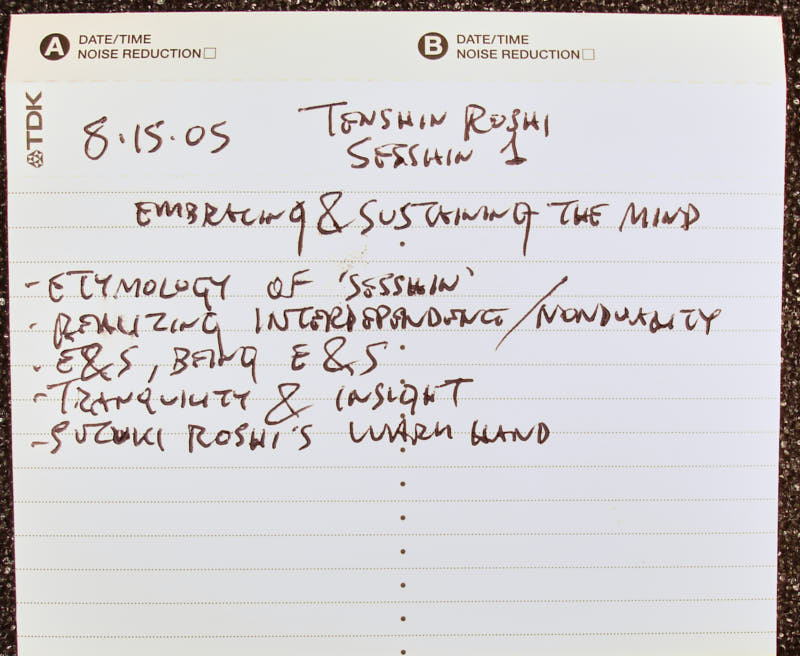 A DATE/TIME
NOISE REDUCTION
B DATE/TIME
NOISE REDUCTION
TDK
8.15.05
TENSHIN ROSHI
SESSHIN 1
EMBRACING & SUSTAINING THE MIND
- ETYMOLOGY OF 'SESSHIN'
- REALIZING INTERDEPENDENCE/NONDUALITY
- E&S, BEING E&S
- TRANQUILITY & INSIGHT
- SUZUKI ROSHI'S WARM HAND